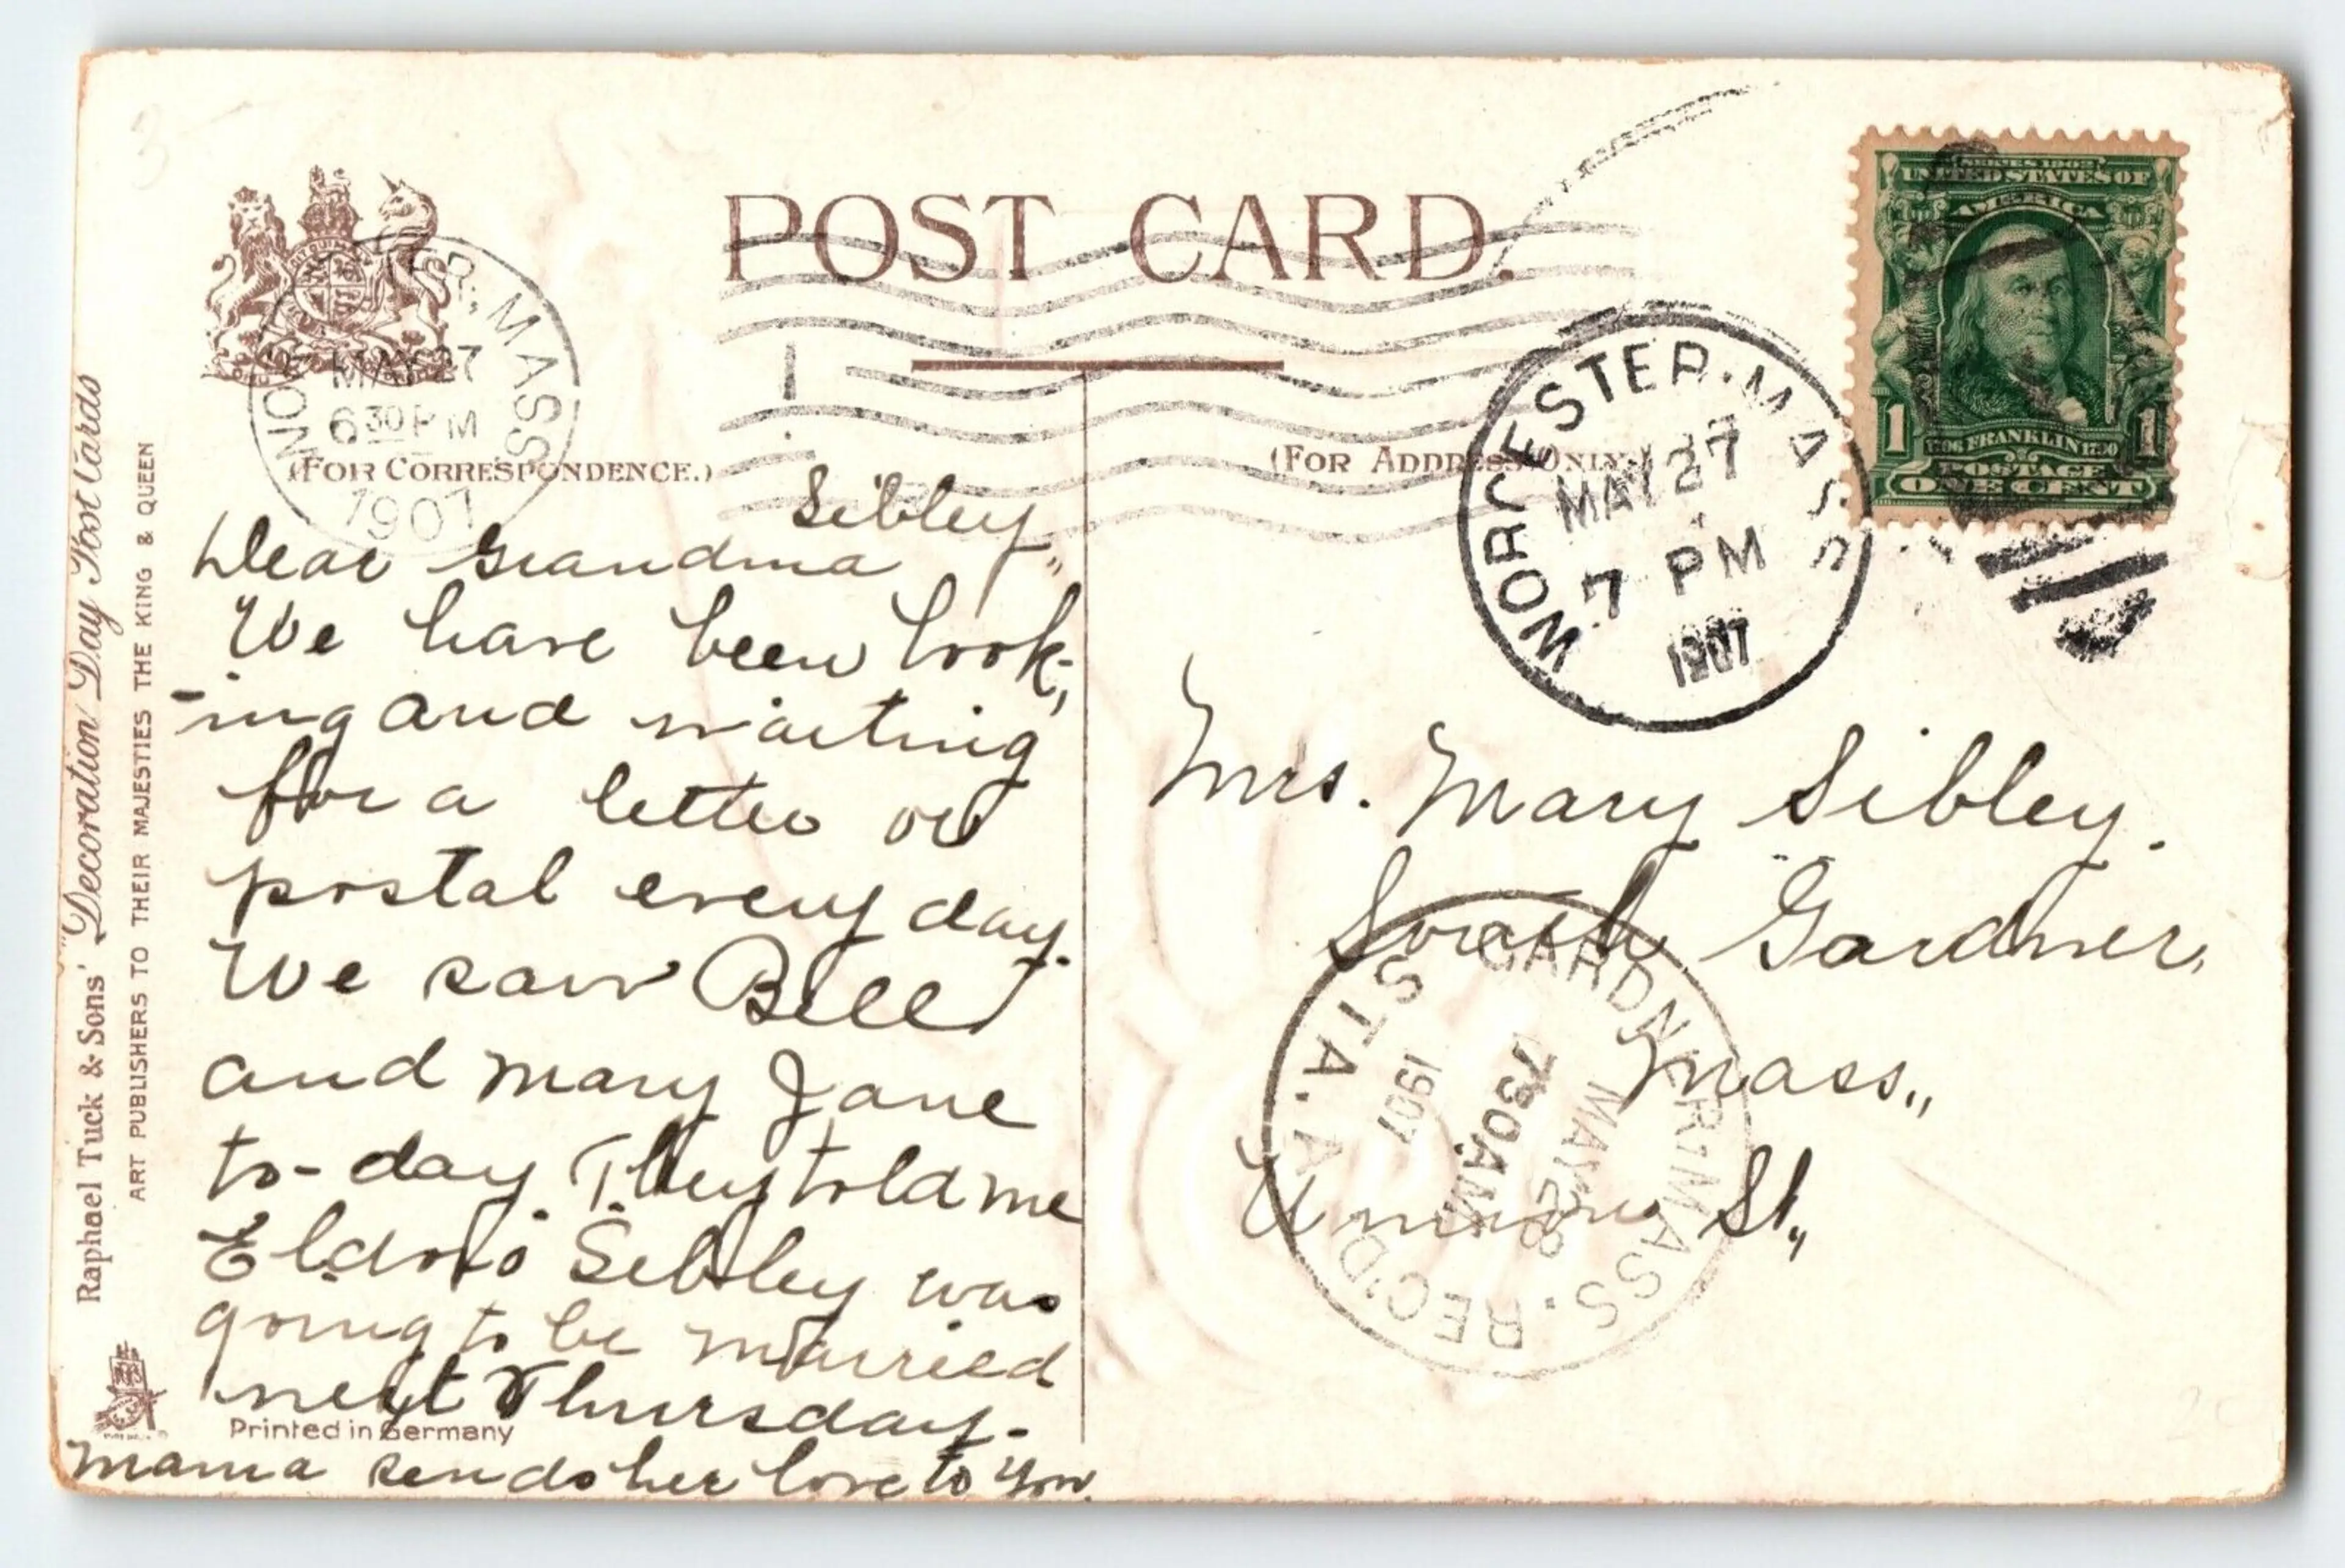 POST CARD.
(FOR CORRESPONDENCE.)
(FOR ADDRESS ONLY.)
R, MASS
MAY 27
6 30 PM
1907
WORCESTER. MASS
MAY 27
7 PM
1907
SERIES 1902
UNITED STATES OF
AMERICA
1 1
1706 FRANKLIN 1790
POSTAGE
ONE CENT
Sibley,,
Dear Grandma
We have been look-
-ing and waiting
for a letter or
postal every day.
We saw Bill
and Mary Jane
to-day. They told me
Sibley was
going to be married
next Thursday.
Mama sends her love to you.
Mrs. Mary Sibley.
South Gardner,
Mass.,
Union St.,
GARDNER, MASS. REC'D
STA. A
MAY 28
730AM
1907
Raphael Tuck & Sons' "Decoration Day Post Cards
ART PUBLISHERS TO THEIR MAJESTIES THE KING & QUEEN
Printed in Germany